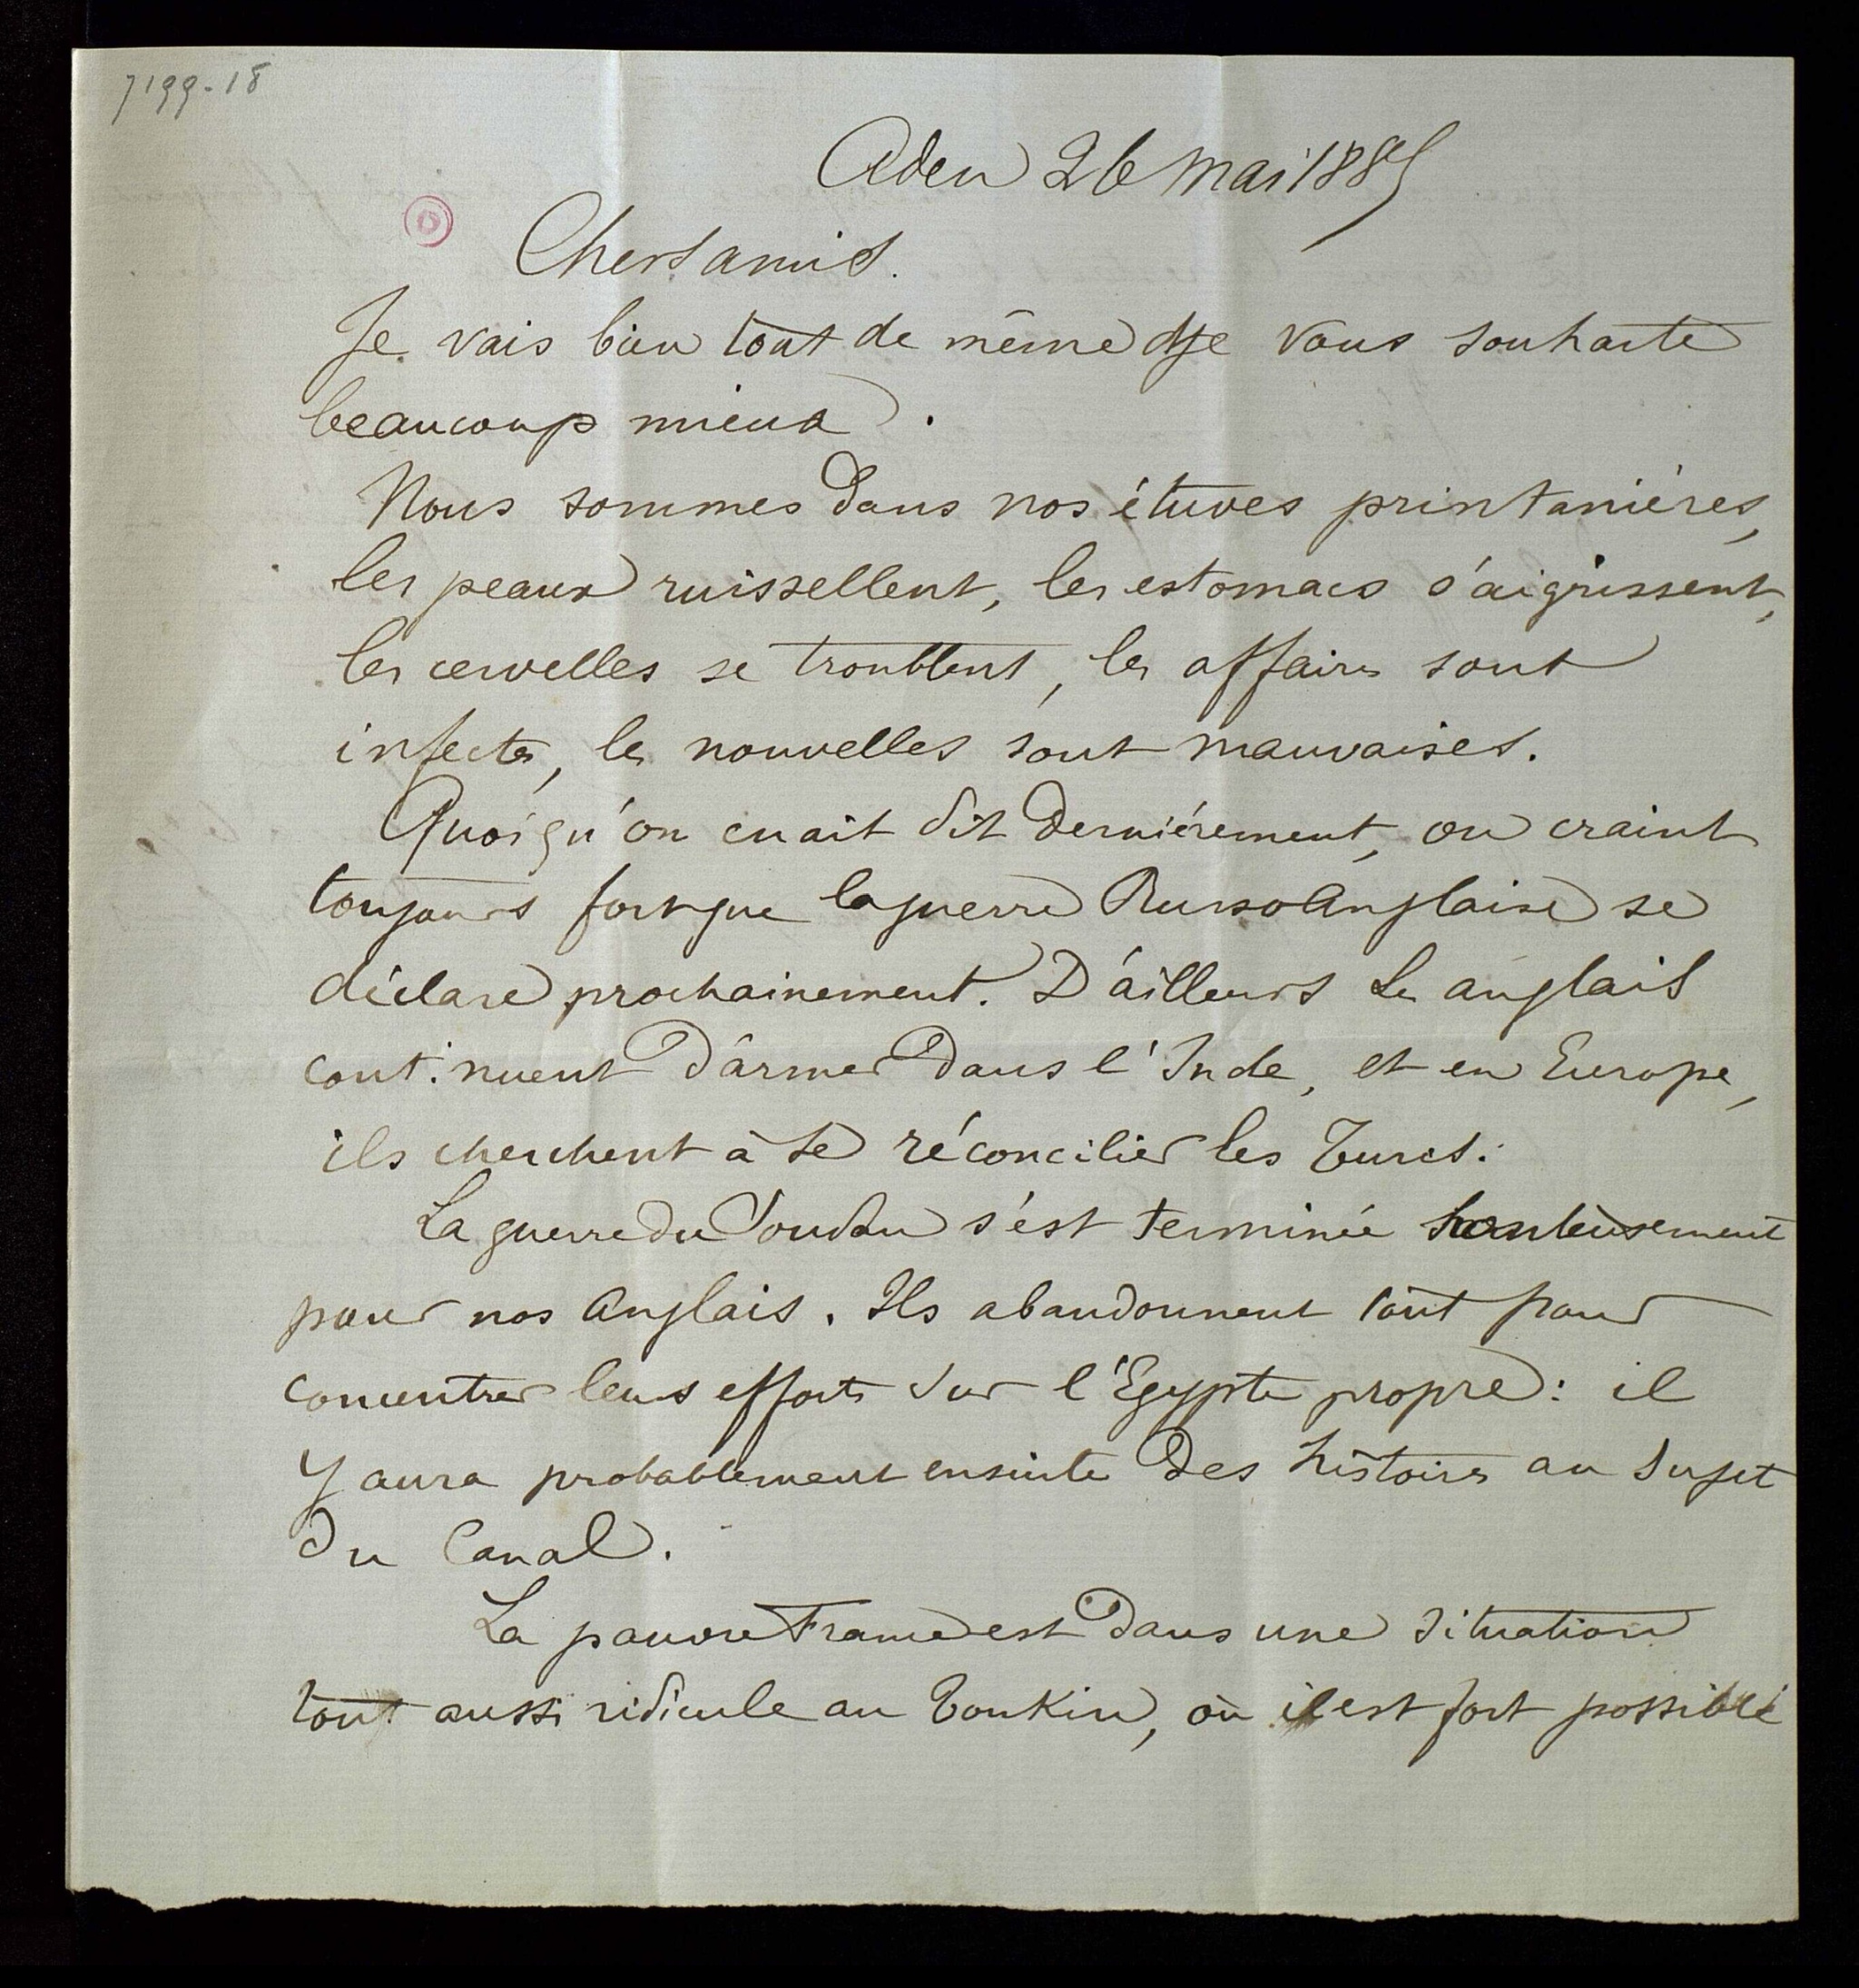 7199-18
Aden 26 mai 1885
Chers amis.
Je vais bien tout de même et je vous souhaite
beaucoup mieux.
Nous sommes dans nos étuves printanières,
les peaux ruissellent, les estomacs s'aigrissent,
les cervelles se troublent, les affaires sont
infectes, les nouvelles sont mauvaises.
Quoiqu'on en ait dit dernièrement, on craint
toujours fort que la guerre Russo Anglaise se
déclare prochainement. D'ailleurs les anglais
continuent d'armer dans l'Inde, et en Europe,
ils cherchent à se réconcilier les Turcs.
La guerre du Soudan s'est terminée honteusement
pour nos Anglais. Ils abandonnent tout pour
concentrer leurs efforts sur l'Egypte propre: il
y aura probablement ensuite des histoires au sujet
du Canal.
La pauvre France est dans une situation
tout aussi ridicule au Tonkin, où il est fort possible